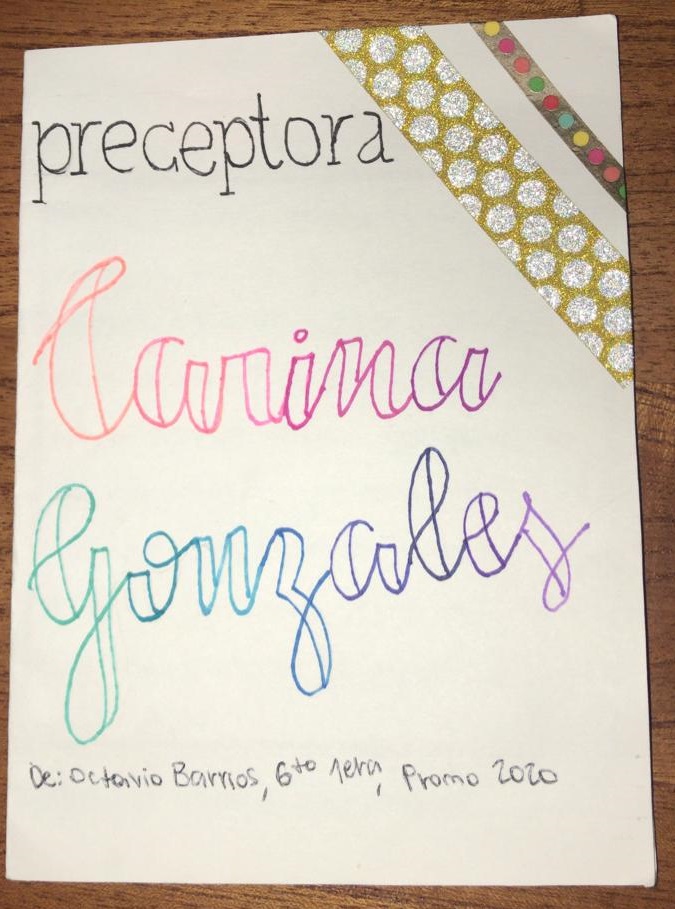 preceptora
Carina
Gonzales
De: Octavio Barrios, 6to 1era, Promo 2020